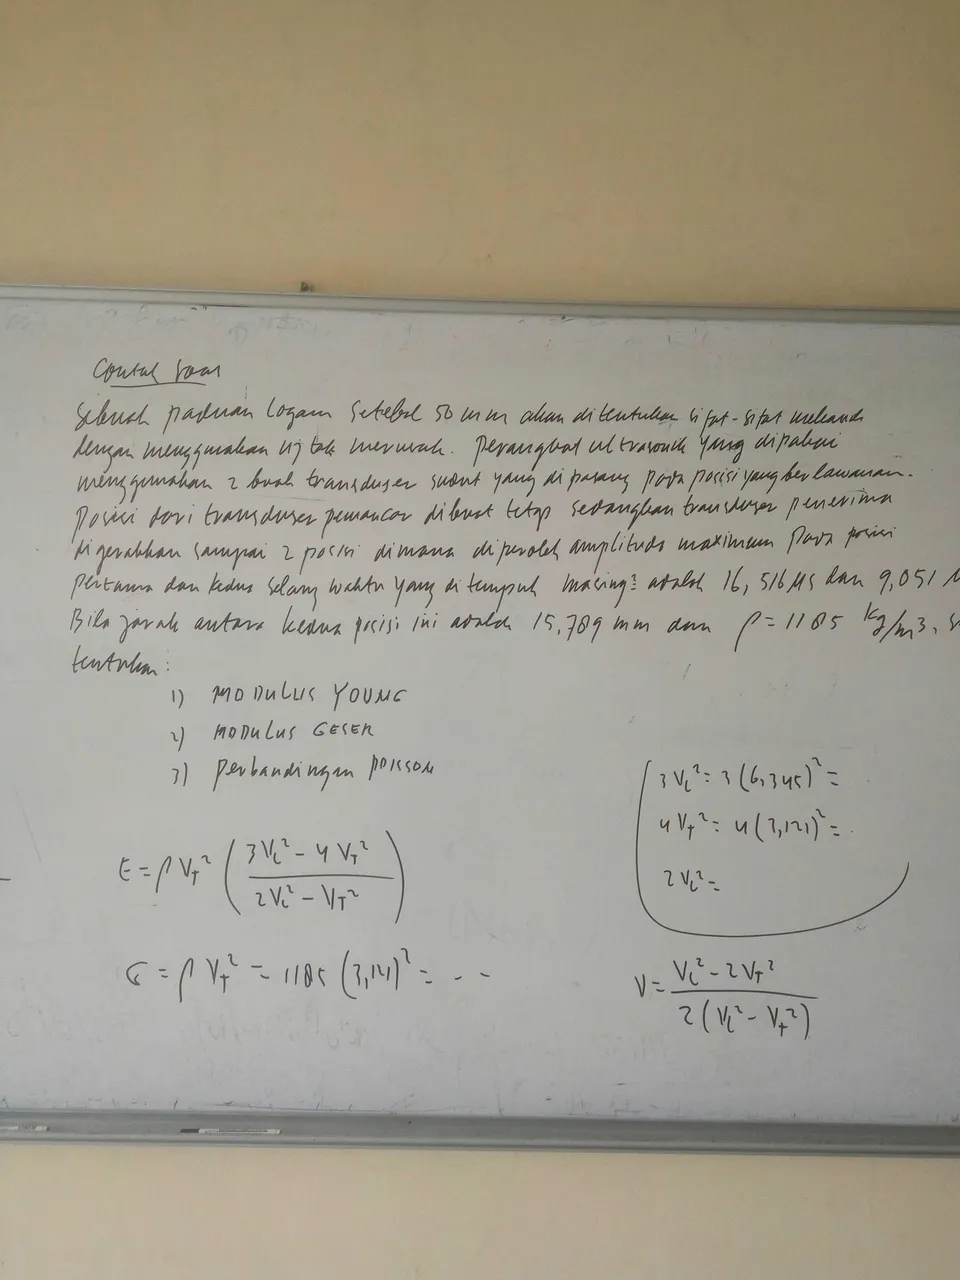 Contoh Soal
Sebuah paduan logam setebal 50 mm akan ditentukan sifat-sifat mekanik
dengan menggunakan uji tak merusak. Perangkat ultrasonik yang dipakai
menggunakan 2 buah transduser sudut yang dipasang pada posisi yang berlawanan.
Posisi dari transduser pemancar dibuat tetap sedangkan transduser penerima
digerakkan sampai 2 posisi dimana diperoleh amplitudo maximum pada posisi
pertama dan kedua selang waktu yang ditempuh masing² adalah 16,516 μs dan 9,051 μ
Bila jarak antara kedua posisi ini adalah 15,789 mm dan ρ = 1185 kg/m3,
tentukan :
1) MODULUS YOUNG
2) MODULUS GESER
3) Perbandingan POISSON
3VL² = 3(6,345)² =
4VT² = 4(3,121)² =
2VL² =
E = ρ VT² ( 3VL² - 4VT² / 2VL² - VT² )
G = ρ VT² = 1185 (3,121)² = - -
V = VL² - 2VT² / 2(VL² - VT²)